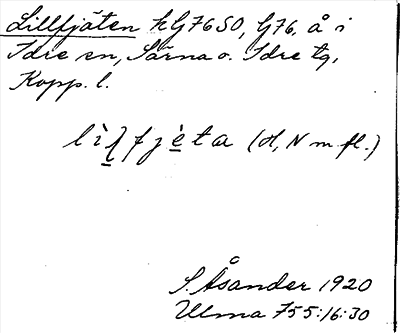 Lillfjäten kG76SO, G76, å i
Idre sn, Särna o. Idre tg,
Kopp. l.
lìlfjètα (d, N m fl.)
S. Åsander 1920
Ulma 755:16:30